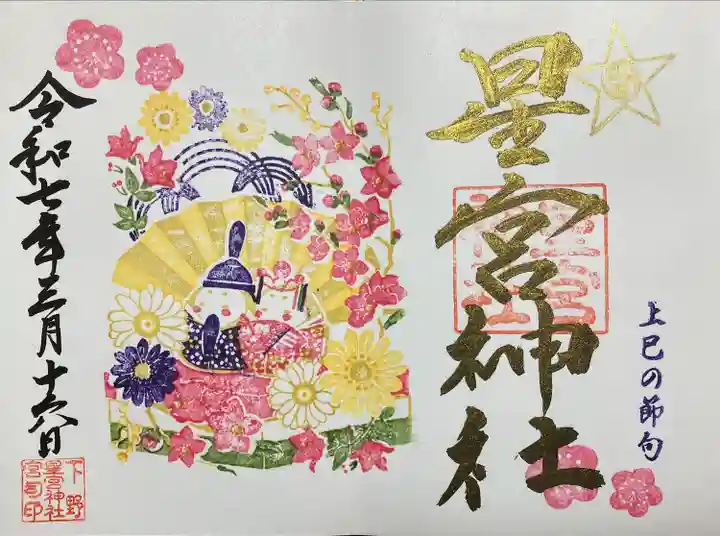 星宮神社
上巳の節句
令和七年三月十六日
下野
星宮神社
宮司印